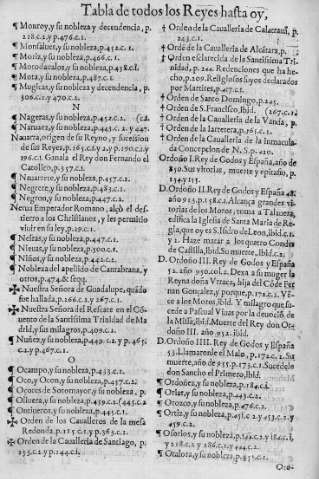 Tabla de todos los Reyes hasta oy,
¶ Monroy, y su nobleza y decendencia, p.
218.c.2.y p.476.c.1.
¶ Monsaluet, y su nobleza, p.452.c.1.
¶ Moriz, y su nobleza, p.466.c.1.
¶ Morodealos, y su nobleza, p.458.c.1.
¶ Mota, y su nobleza, p.487.c.1.
¶ Mugicas, y su nobleza y decendencia, p.
306.c.1.y 470.c.2.
N
¶ Nageras, y su nobleza, p.452.c.1.
¶ Naruaez, y su nobleza, p.443.c.1. y 445
Nauarra, origen de su Reyno, y sucesion
de sus Reyes, p.165.c.2.y 2.p.190.c.2.y
196.c.1. Ganala el Rey don Fernando el
Catolico, p.357.c.2.
¶ Nauarrete, y su nobleza, p.457.c.1.
¶ Negrete, y su nobleza, p.483.c.1.
¶ Negron, y su nobleza, p.447.c.1.
Nerua Emperador Romano, alçò el des-
tierro a los Christianos, y les permitio
viuir en su ley, p.29.c.1.
¶ Neyras, y su nobleza, p.447.c.1.
¶ Nietas, y su nobleza, p.300.c.1.
¶ Niños, y su nobleza, p.442.c.1.
Nobleza del apellido de Cantabrana, y
otros, p.474.& seqq.
✠ Nuestra Señora de Guadalupe, quãdo
fue hallada, p.266.c.2.y 267.c.1.
✠ Nuestra Señora del Rescate en el Cõ-
uento de la Santissima Trinidad de Ma-
drid, y sus milagros, p.409.c.1.
¶ Nuñez, y su nobleza, p.440.c.2. y p.463.
c.2.y p.467.c.1.
O
¶ Ocampo, y su nobleza, p.433.c.1.
¶ Oco, y Ocon, y su nobleza, p.457.c.2.
¶ Osores de Sotomayor, y su nobleza, p.
¶ Oliuera, y su nobleza, p.459.c.2.
¶ Ontiueros, y su nobleza, p.443.c.1.
✠ Orden de los Caualleros de la mesa
Redonda, p.125.c.1.y p.363.c.1.
✠ Orden de la Caualleria de Santiago, p.
135.c.2.y p.144.c.1.
† Orden de la Caualleria de Calatraua, p.
243.c.1.
† Ordẽ de la Caualleria de Alcãtara, p.
† Ordẽ esclarecida de la Santissima Tri-
nidad, p.244. Redenciones que ha he-
cho, p.209. Religiosos suyos declarados
por Martires, p.417.c.1.
† Orden de Santo Domingo, p.245.
† Orden de S. Francisco, Ibid. (267.c.1.
† Orden de la Caualleria de la Vanda, p.
† Orden de la Iarretera, p.265.c.1.
† Orden de la Caualleria de la inmacula-
da Concepcion de N.S. p.420.
Ordoño I. Rey de Godos y España, año de
850. Sus vitorias, muerte y epitafio, p.
154 y 155.
D. Ordoño II. Rey de Godos y España 48.
año 913. p.158.c.1. Alcança grandes vi-
torias de los Moros, toma a Talauera,
edifica la Iglesia de Santa Maria de Re-
gla, que oy es S. Isidro de Leon, Ibid.c.1.
y 2. Haze matar a los quatro Condes
de Castilla, Ibid. Su muerte, Ibid.c.1.
D. Ordoño III. Rey de Godos y España
52. año 950.col.2. Dexa a su muger la
Reyna doña Vrraca, hija del Cõde Fer-
nan Gonçalez, y porque, p.172.c.1. Vẽ-
ce a los Moros, Ibid. Y milagro que su-
cede a Pascual Viuas por la deuociõ de
la Missa, Ibid. Muerte del Rey don Or-
doño III. año 952. Ibid.
D. Ordoño IIII. Rey de Godos y España
53. Llamaronle el Malo, p.172.c.1. Su
muerte, año de 955. p.173.c.1. Sucedele
don Sancho el Primero, Ibid.
¶ Ordoñez, y su nobleza, p.184.c.1.
¶ Orlas, y su nobleza, p.445.c.2.
¶ Orozco, y su nobleza, p.476.c.1.
¶ Ortiz, y su nobleza, p.451.c.2.y 453.c.2.y
459.c.1.
¶ Osorios, y su nobleza, p.144.c.2.y 184.c.1.
y 218.c.1.y 286.c.1.y 444.c.1.
¶ Otalora, y su nobleza, p.451.c.1.